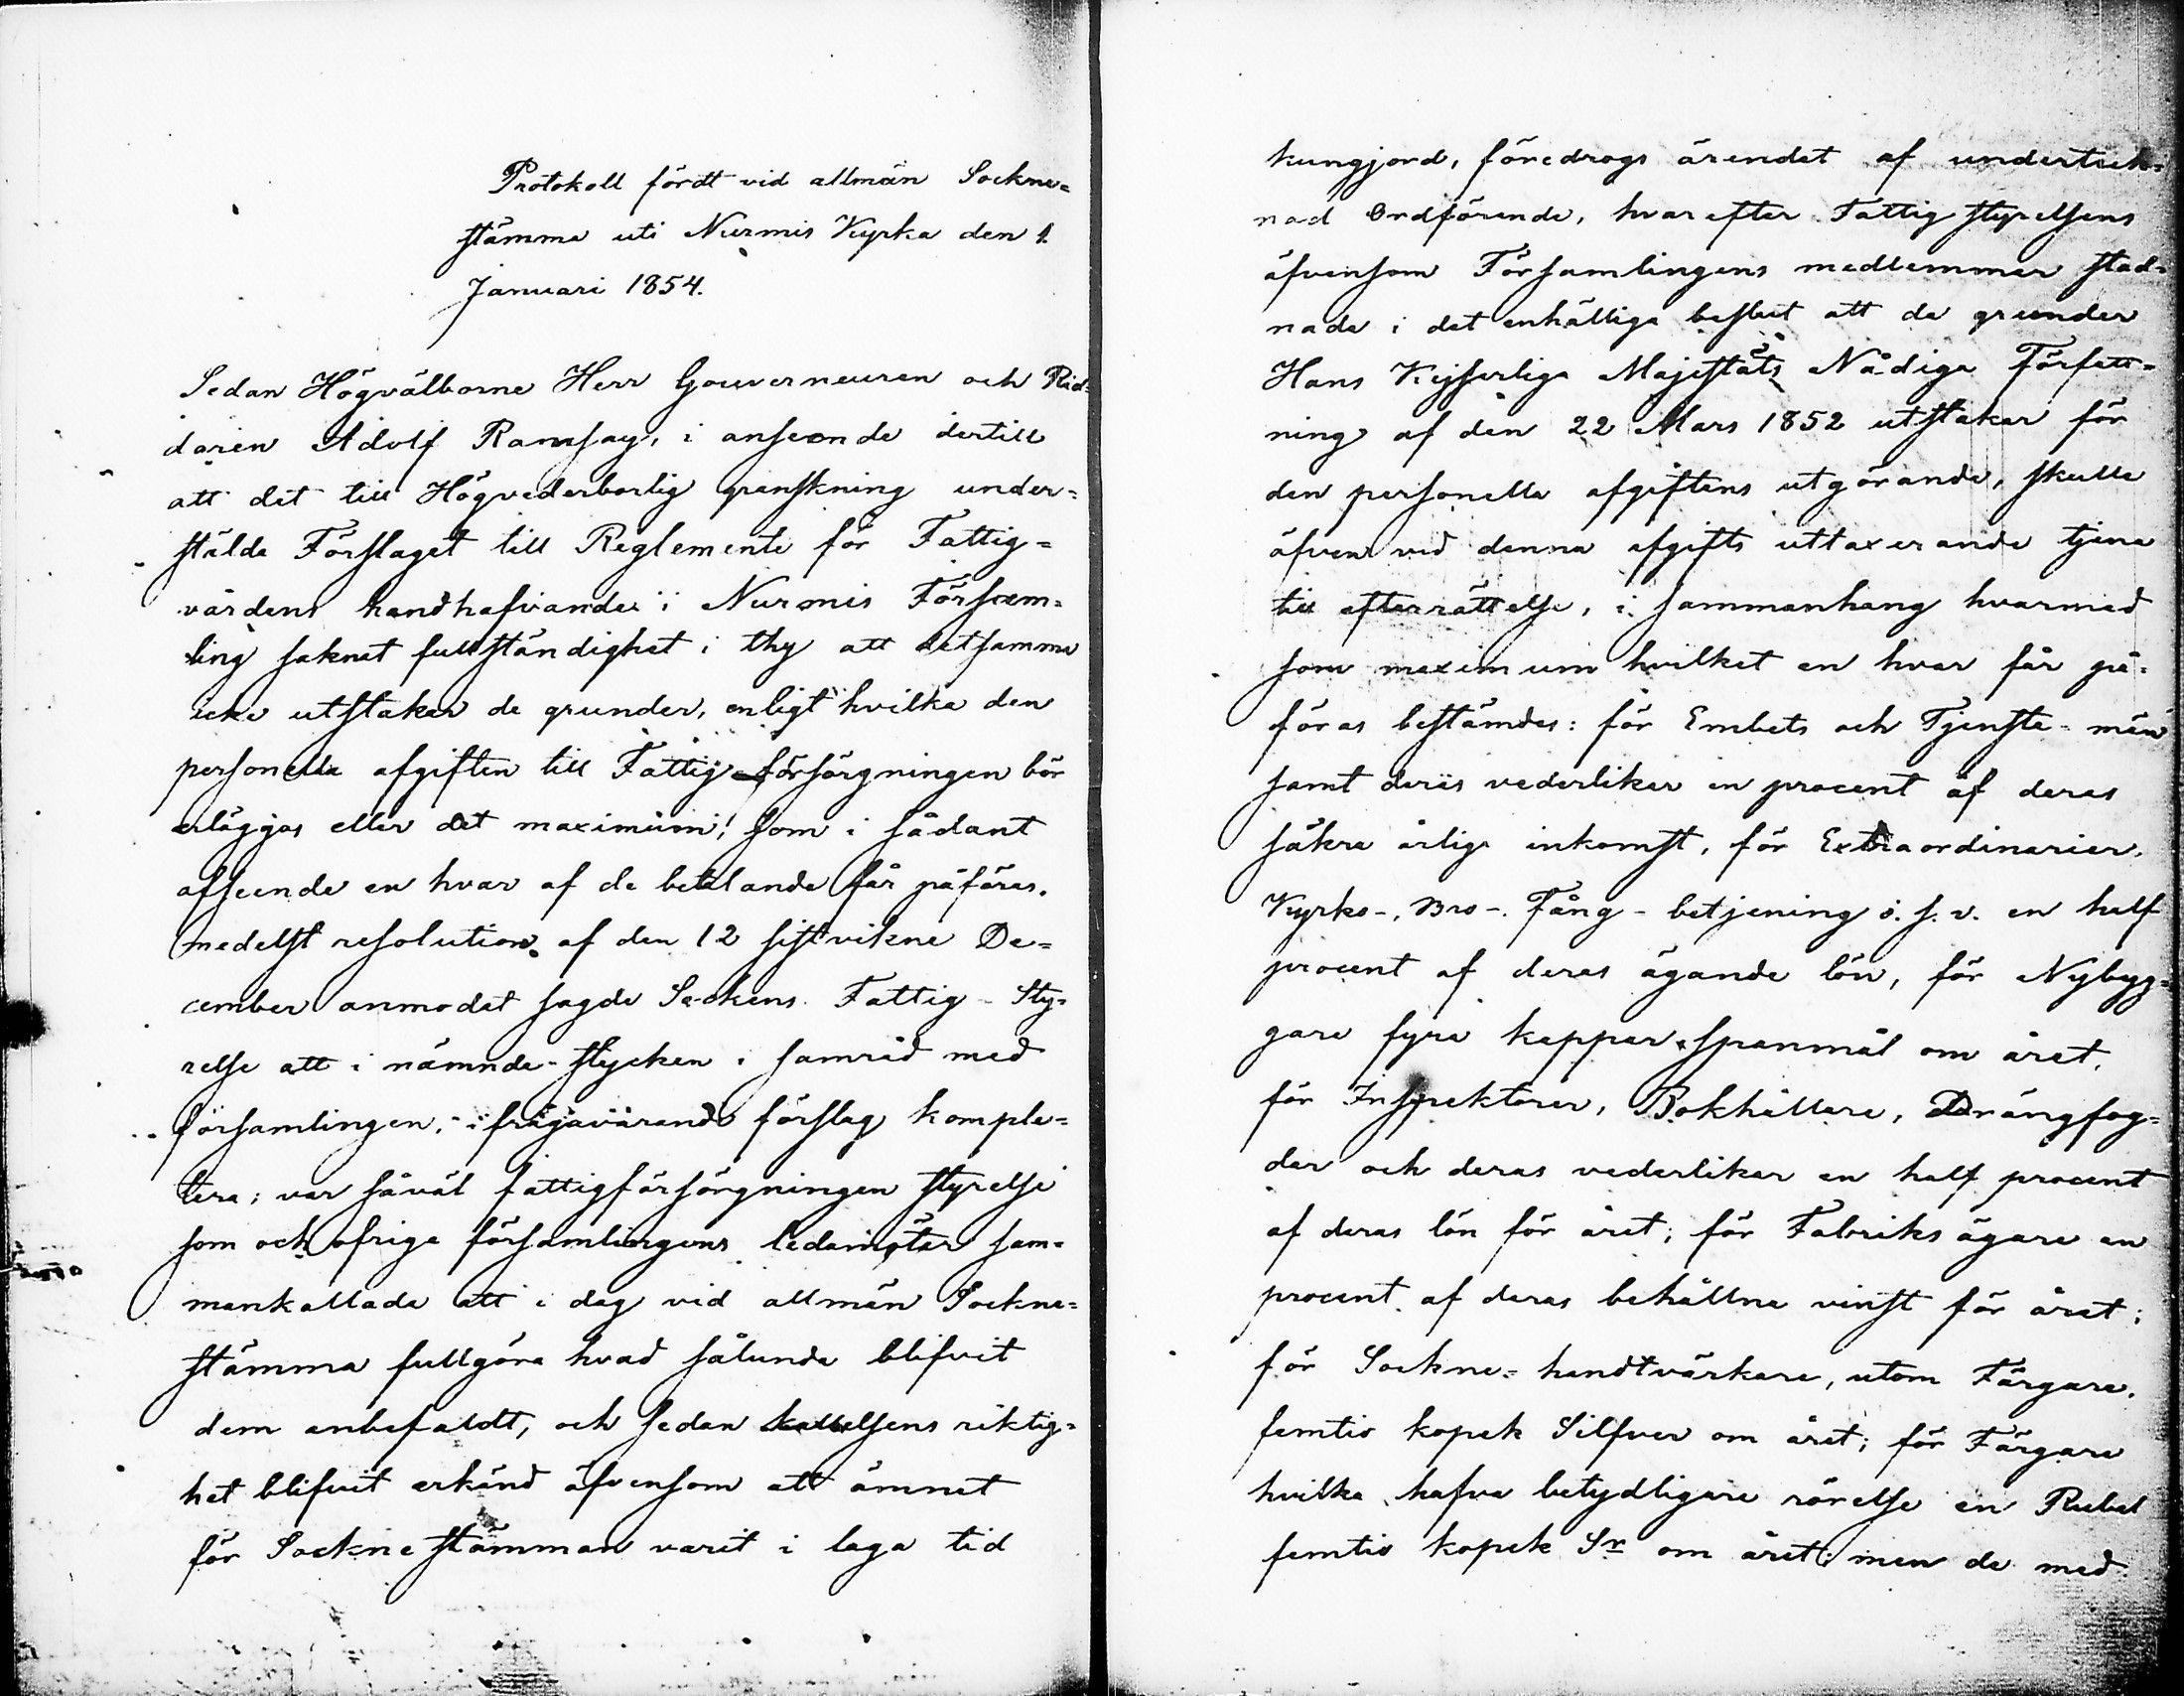 Protokoll fördt vid allmän Sockne=
stämma uti Nurmis Kyrka den 1.
Januari 1854.
Sedan Högvälborne Herr Gouverneuren och Rid=
daren Adolf Ramsay, i anseende dertill
att det till Högvederborlig granskning under=
stälda Förslaget till Reglemente för Fattig=
vårdens handhafvande i Nurmis Försam=
ling saknat fullständighet i thy att detsamma
icke utstakar de grunder, enligt hvilka den
personella afgiften till Fattig-försörgningen bör
erläggas eller det maximum, som i sådant
afseende en hvar af de betalande får påföras.
medelst resolution af den 12 sistvikne De=
cember anmodat sagde Sockens Fattig-Sty=
relse att i nämnde-stycken i samråd med
församlingen, ifrågavarande förslag komple=
tera; var såväl fattigförsörgningen styrelse
som och öfriga församlingens ledamöter sam=
mankallade att i dag vid allmän Sockne=
stämma fullgöra hvad sålunda blifvit
dem anbefaldt, och sedan kallelsens riktig=
het blifvit erkänd äfvensom att ämnet
för Socknestämman varit i laga tid
kungjord, föredrogs ärendet af underteck=
nad Ordförende, hvarefter Fattigstyrelsens
äfvensom Församlingens medlemmar stad=
nade i det enhälliga beslut att de grunder
Hans Kejserliga Majestäts Nådiga Författ=
ning af den 22 Mars 1852 utstakar för
den personella afgiftens utgörande, skulle
äfven vid denna afgifts uttaxerande tjena
till efterrättelse, i sammanhang hvarmed
som maximum hvilket en hvar får på=
föras bestämdes: för Embets och Tjenste-män
samt deras vederlikar en procent af deras
säkra årliga inkomst, för Extraordinarier,
Kyrko-, Bro-, Fång-betjening o. s. v. en half
procent af deras ägande lön, för Nybyg=
gare fyra kappar spanmål om året,
för Inspektorer, Bokhållare, Drängfog=
dar och deras vederlikar en half procent
af deras lön för året; för Fabriks ägare en
procent af deras behållna vinst för året;
för Sockne=handtvärkare, utom Färgare,
femtio kopek Silfver om året; för Färgare
hvilka hafva betydligare rörelse en Rubel
femtio kopek Sr om året; men de med